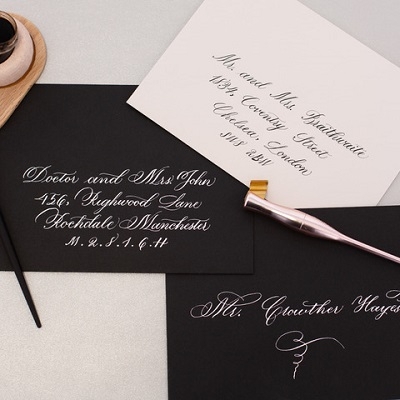 Mr. and Mrs. Braithwaite
1834, Coventry Street
Chelsea, London
SW8 RBH
Doctor and Mrs John
436, Highwood Lane
Rochdale Manchester
M.R.8.1.6.H
Mr. Crowther Hayes